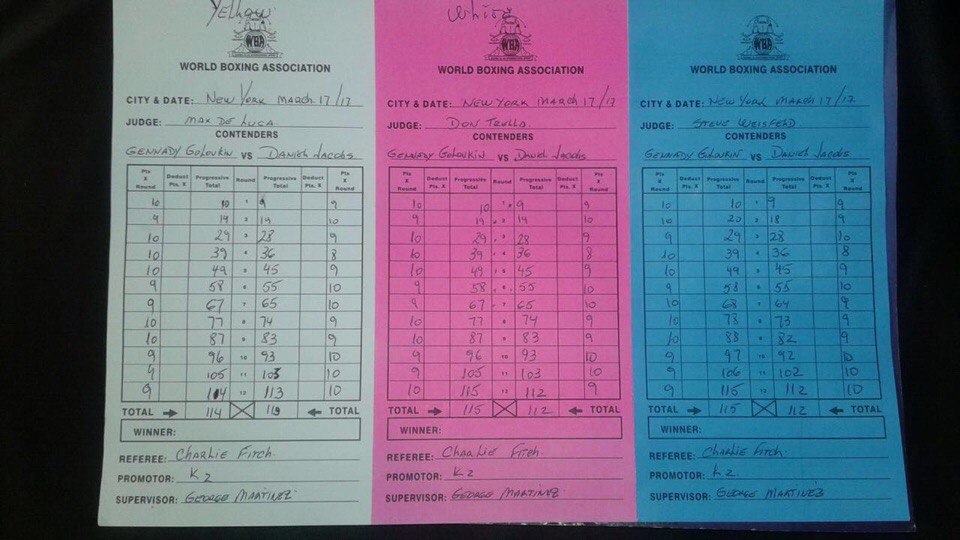 Yellow
WBA
WORLD BOXING ASSOCIATION
CITY & DATE: NEW YORK MARCH 17/17
JUDGE: MAX DE LUCA
CONTENDERS
GENNADY GOLOVKIN VS DANIEL JACOBS
Pts X Round Deduct Pts. X Progressive Total Round Progressive Total Deduct Pts. X Pts X Round
10 10 1 9 9
9 19 2 19 10
10 29 3 28 9
10 39 4 36 8
10 49 5 45 9
9 58 6 55 10
9 67 7 65 10
10 77 8 74 9
10 87 9 83 9
9 96 10 93 10
9 105 11 103 10
9 114 12 113 10
TOTAL 114 113 TOTAL
WINNER:
REFEREE: CHARLIE FITCH
PROMOTOR: K2
SUPERVISOR: GEORGE MARTINEZ
White
WBA
WORLD BOXING ASSOCIATION
CITY & DATE: NEW YORK MARCH 17/17
JUDGE: DON TRELLA
CONTENDERS
GENNADY GOLOVKIN VS DANIEL JACOBS
Pts X Round Deduct Pts. X Progressive Total Round Progressive Total Deduct Pts. X Pts X Round
10 10 1 9 9
9 19 2 19 10
10 29 3 28 9
10 39 4 36 8
10 49 5 45 9
9 58 6 55 10
9 67 7 65 10
10 77 8 74 9
10 87 9 83 9
9 96 10 93 10
9 105 11 103 10
10 115 12 112 9
TOTAL 115 112 TOTAL
WINNER:
REFEREE: CHARLIE FITCH
PROMOTOR: K2
SUPERVISOR: GEORGE MARTINEZ
WBA
WORLD BOXING ASSOCIATION
CITY & DATE: NEW YORK MARCH 17/17
JUDGE: STEVE WEISFELD
CONTENDERS
GENNADY GOLOVKIN VS DANIEL JACOBS
Pts X Round Deduct Pts. X Progressive Total Round Progressive Total Deduct Pts. X Pts X Round
10 10 1 9 9
10 20 2 18 9
9 29 3 28 10
10 39 4 36 8
10 49 5 45 9
9 58 6 55 10
10 68 7 64 9
10 78 8 73 9
10 88 9 82 9
9 97 10 92 10
9 106 11 102 10
9 115 12 112 10
TOTAL 115 112 TOTAL
WINNER:
REFEREE: CHARLIE FITCH
PROMOTOR: K2
SUPERVISOR: GEORGE MARTINEZ